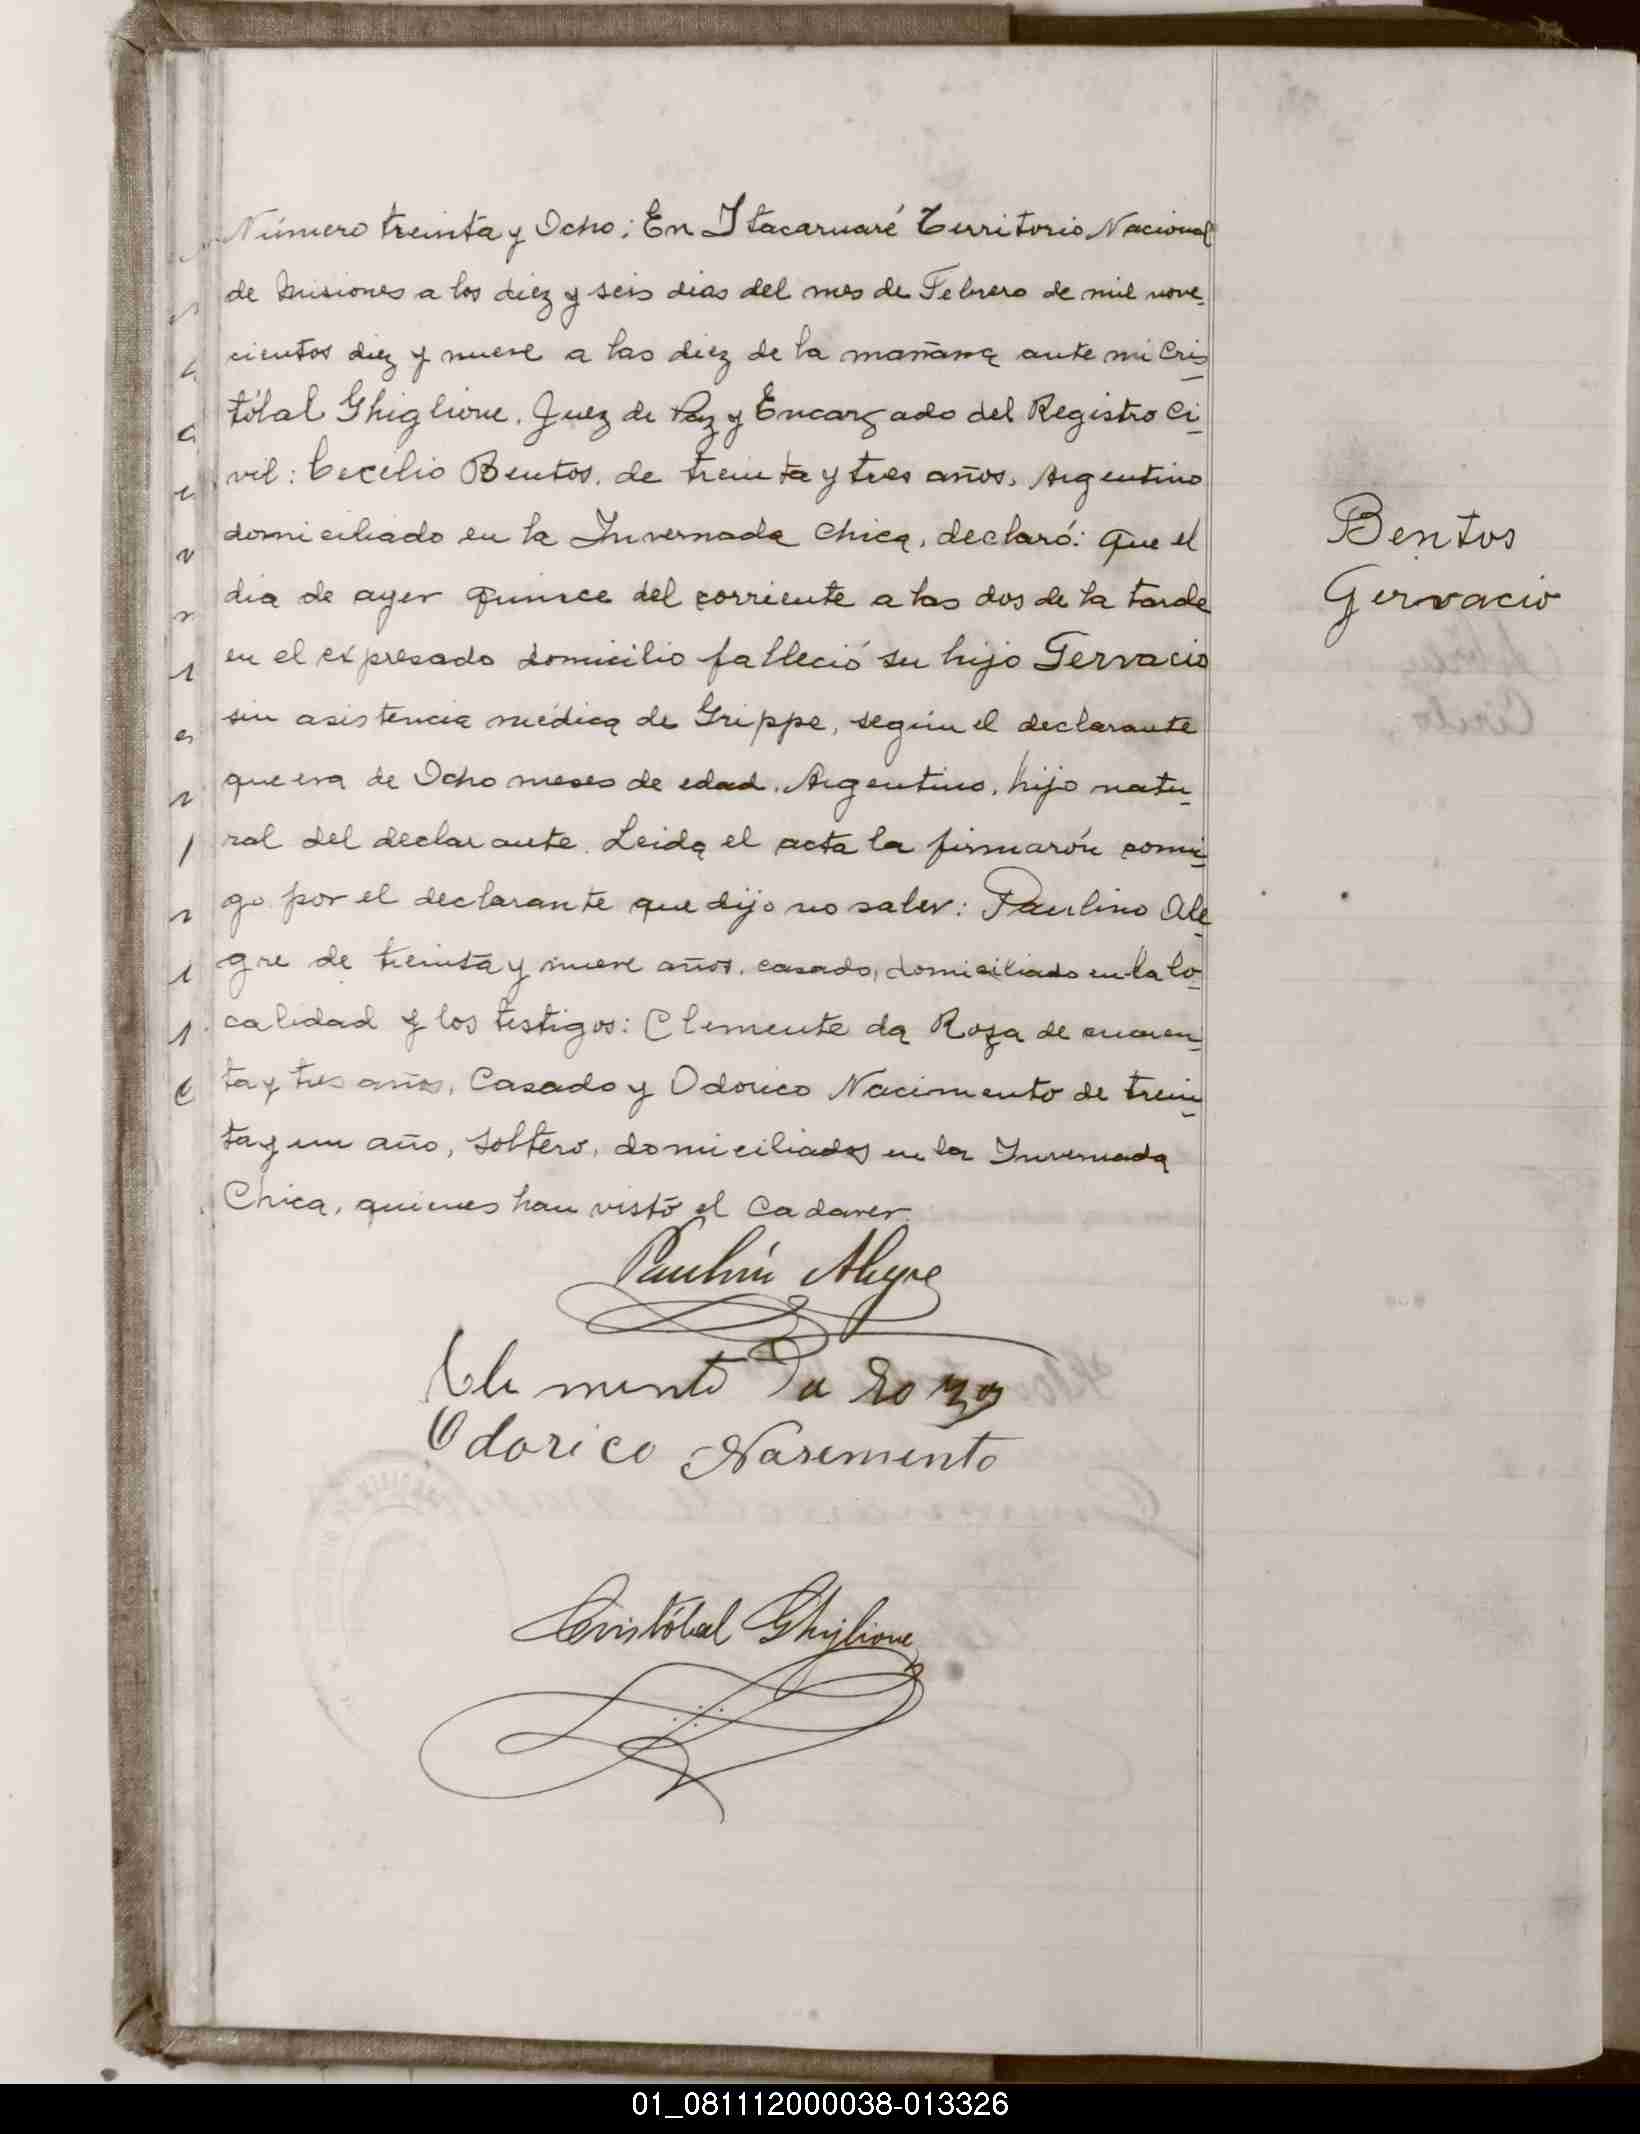 Número treinta y Ocho: En Itacaruaré Territorio Nacional
de Misiones a los diez y seis dias del mes de Febrero de mil nove-
cientos diez y nueve a las diez de la mañana ante mi Cris-
tóbal Ghiglione. Juez de Paz y Encargado del Registro Ci-
vil: Cecilio Bentos. de treinta y tres años. Argentino
domiciliado en la Invernada Chica, declaró: Que el
dia de ayer quince del corriente a las dos de la tarde
en el expresado domicilio falleció su hijo Gervacio
sin asistencia médica de Grippe, según el declarante
que era de Ocho meses de edad. Argentino, hijo natu-
ral del declarante. Leida el acta la firmarón comi-
go por el declarante que dijo no saber: Paulino Ale-
gre de treinta y nueve años. casado, domiciliado en la lo-
calidad y los testigos: Clemente da Roza de cuaren-
ta y tres años, Casado y Odorico Nacimento de trein-
ta y un año, Soltero, domiciliados en la Invernada
Chica, quienes han visto el Cadaver.
Bentos
Gervacio
Paulino Alegre
Clemente Da Roza
Odorico Nasemento
Cristóbal Ghiglione
01_081112000038-013326